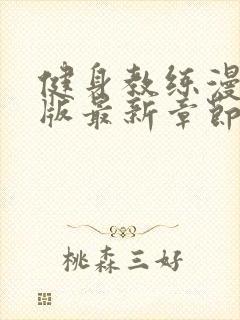 健身教练漫
版最新章节
桃森三好